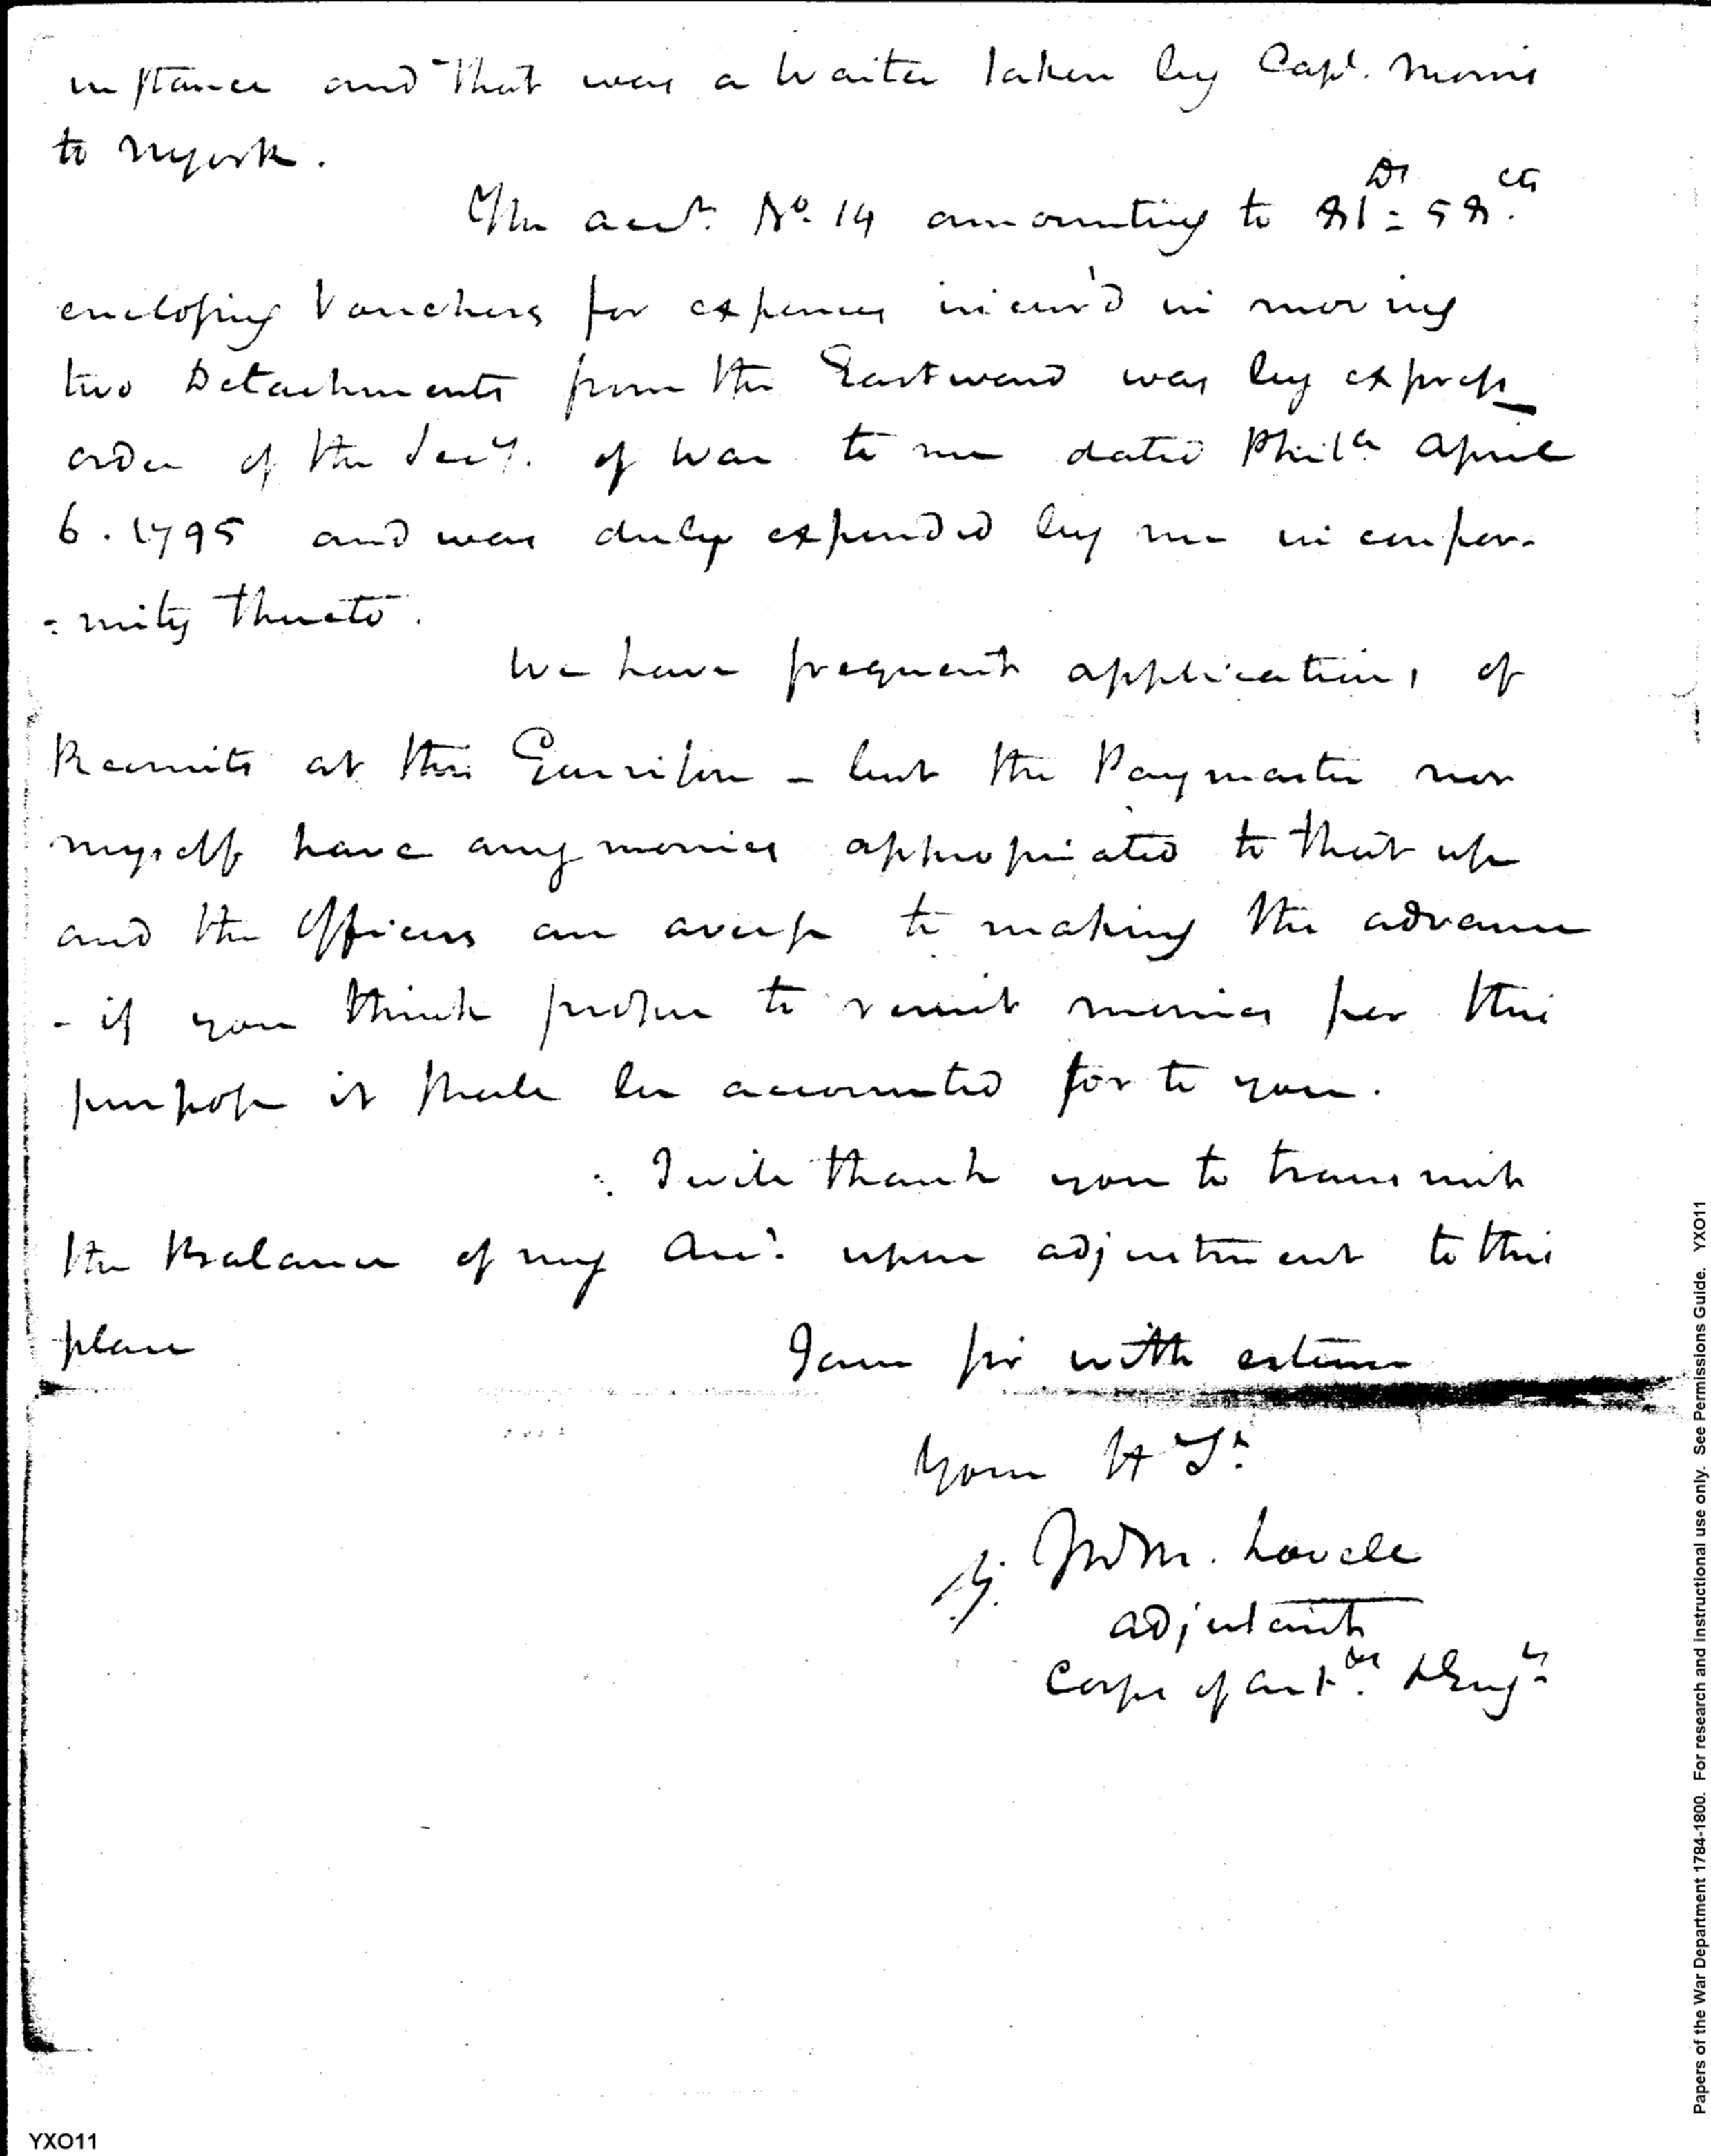 instance and that was a Waiter taken by Capt. Morris
to NYork.
The acct. No. 14 amounting to 81Ds = 58.cts
enclosing Vouchers for expences incur'd in moving
two Detachments from the Eastward was by express
order of the Secy. of War to me dated Phila April
6. 1795 and was duly expended by me in confor-
=mity thereto.
We have frequent applications of
Recruits at this Garrison - but the Paymaster nor
myself have any monies appropriated to that use
and the Officers are averse to making the advance
- if you think proper to remit monies for this
purpose it shall be accounted for to you.
I will thank you to transmit
the Balance of my Acct. upon adjustment to this
place
I am sir with esteem
Your H St.
Jno M. Lovell
Adjutant
Corps of Art.ers & Engrs
Papers of the War Department 1784-1800. For research and instructional use only. See Permissions Guide. YXO11
YXO11